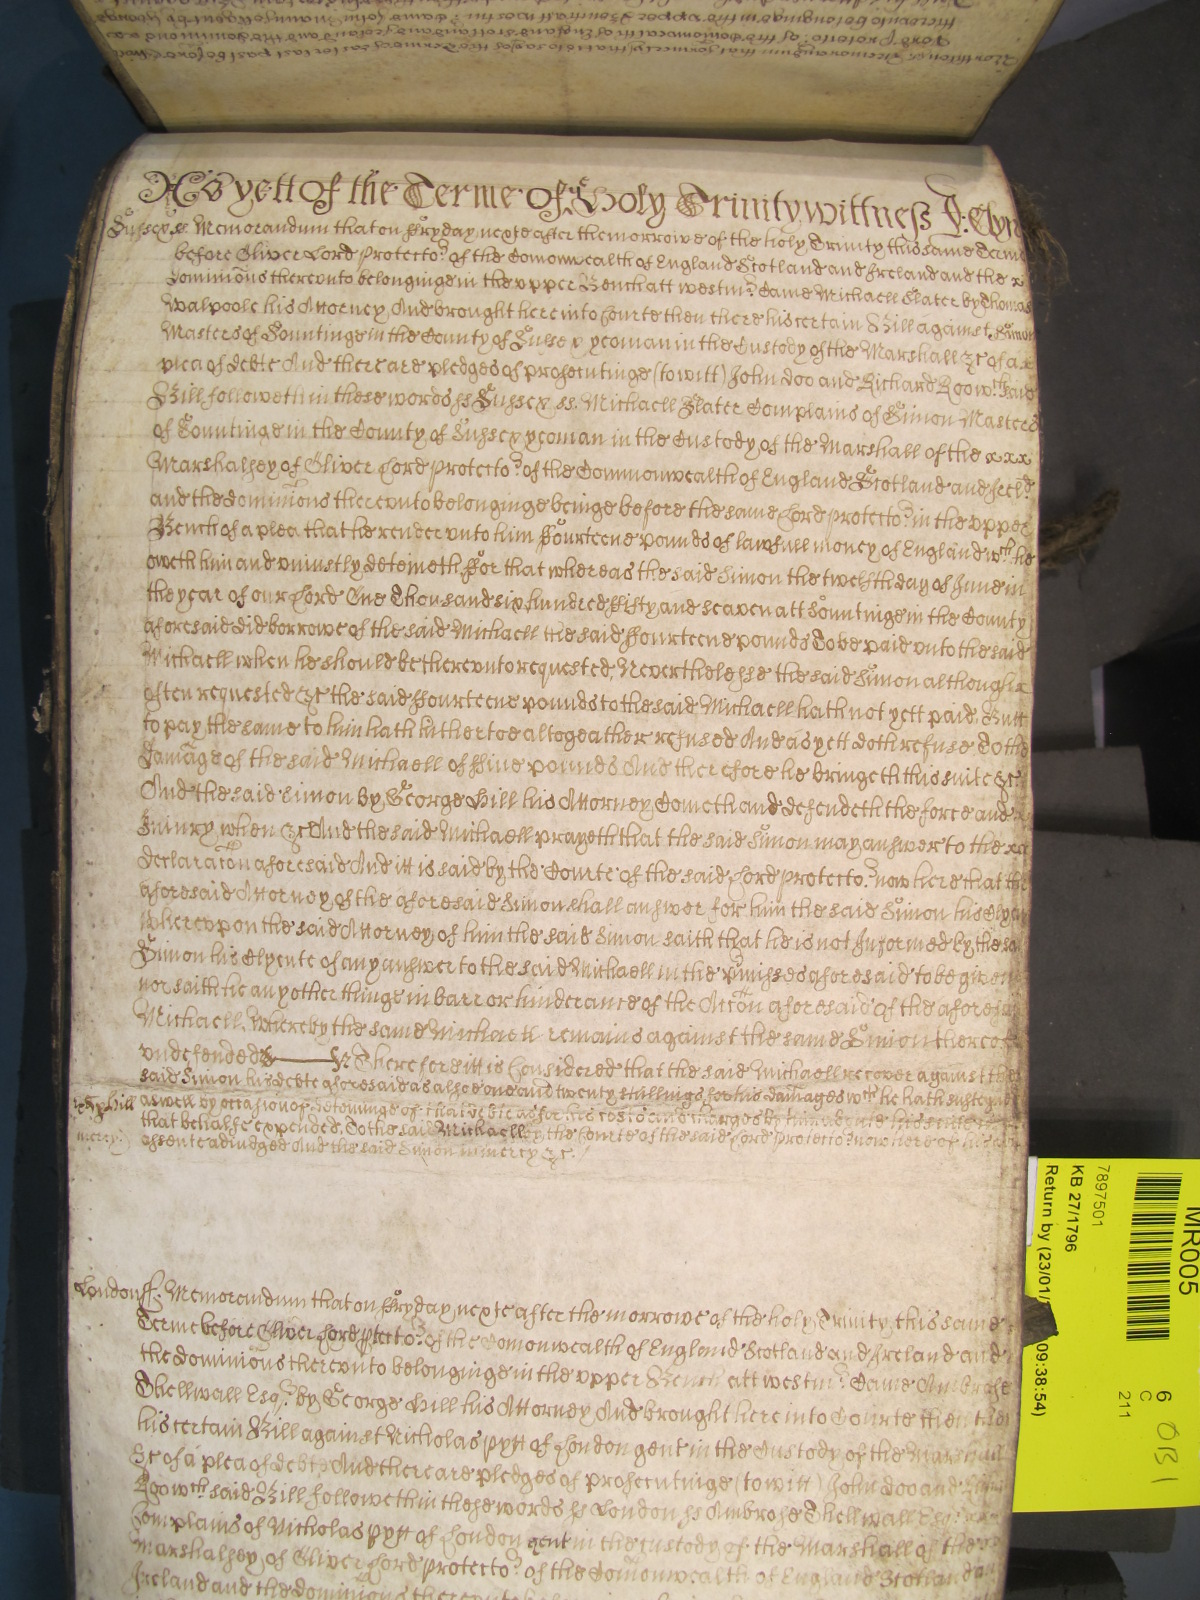 As yett of the Terme of Holy Trinity wittness J: Clyn
Sussex ss. Memorandum that on ffryday nexte after the morrowe of the holy Trinity this same Terme
before Oliver Lord Protecto.r of the Comonwealth of England Scotland and Ireland and the x
Dominions therevnto belonginge in the vpper Bench att westm.r Came Michaell Slater by Thomas
Walpoole his Attorney And brought here into Courte then there his certain Bill against Simon
Masters of Countinge in the County of Sussex yeoman in the Custody of the Marshall &c of a x
plea of debte And there are pledges of prosecutinge (to witt) John doo and Richard Roo w.ch said
Bill followeth in these words ss Sussex ss. Michaell Slater Complains of Simon Masters
of Countinge in the County of Sussex yeoman in the Custody of the Marshall of the x x x
Marshalsey of Oliver Lord Protecto.r of the Commonwealth of England Scotland and Irel.d
and the dominions therevnto belonginge beinge before the same Lord Protecto.r in the vpper
Bench of a plea that he render vnto him ffourteene pounds of lawfull money of England w.ch he
oweth him and vniustly deteineth ffor that whereas the said Simon the twelfth day of June in
the year of our Lord One Thousand six hundred ffifty and seaven att Countinge in the County
aforesaid did borrowe of the said Michaell the said ffourteene pounds To be paid vnto the said
Michaell when he should be therevnto requested, Neverthelesse the said Simon although x
often requested &c the said ffourteene pounds to the said Michaell hath not yett paid, Butt
to pay the same to him hath hithertoe altogeather refused And as yett doth refuse To the
Damage of the said Michaell of ffive pounds And therefore he bringeth this suite &c
And the said Simon by George Hill his Attorney Cometh and defendeth the force and
Iniury when &c And the said Michaell prayeth that the said Simon may answer to the x x
declaracon aforesaid And itt is said by the Courte of the said Lord Protecto.r now here that the
aforesaid Attorney of the aforesaid Simon shall answer for him the said Simon his Clyent
Wherevpon the said Attorney of him the said Simon saith that he is not Informed by the sa
Simon his Clyente of any answer to the said Michaell in the p'misses aforesaid to be given
nor saith he any other thinge in barr or hinderance of the Accon aforesaid of the aforesaid
Michaell, Whereby the same Michaell remains against the same Simon thereof
vndefended &c Therefore itt is Considered that the said Michaell recover against the
said Simon his debte aforesaid as alsoe one and twenty shillings for his damages w.ch he hath susteyned
aswell by occasion of deteininge of that debte as for his costs and charges by him aboute his suite in
that behalfe expended, To the said Michaell by the Courte of the said Lord Protecto.r now here of his
assente adiudged And the said Simon in mercy &c.
mercy
London ss. Memorandum that on ffryday nexte after the morrowe of the holy Trinity this same
Terme before Oliver Lord Ptecto.r of the Comonwealth of England Scotland and Ireland and
the dominions therevnto belonginge in the vpper Bench att westm.r Came Ambrose
Thellwall Esq.r by George Hill his Attorney And brought here into Courte then there
his certain Bill against Nicholas Pytt of London gent in the Custody of the Marshall
&c of a plea of debte And there are pledges of prosecutinge (to witt) John doo and
Roo w.ch said Bill followeth in these words ss London ss Ambrose Thellwall Esq.r
Complains of Nicholas Pytt of London gent in the custody of the Marshall of the
Marshalsey of Oliver Lord Protecto.r of the Comonwealth of England Scotland and
Ireland and the dominions therevnto
MR005
6
C
211
7897501
KB 27/1796
Return by (23/01/
09:38:54)